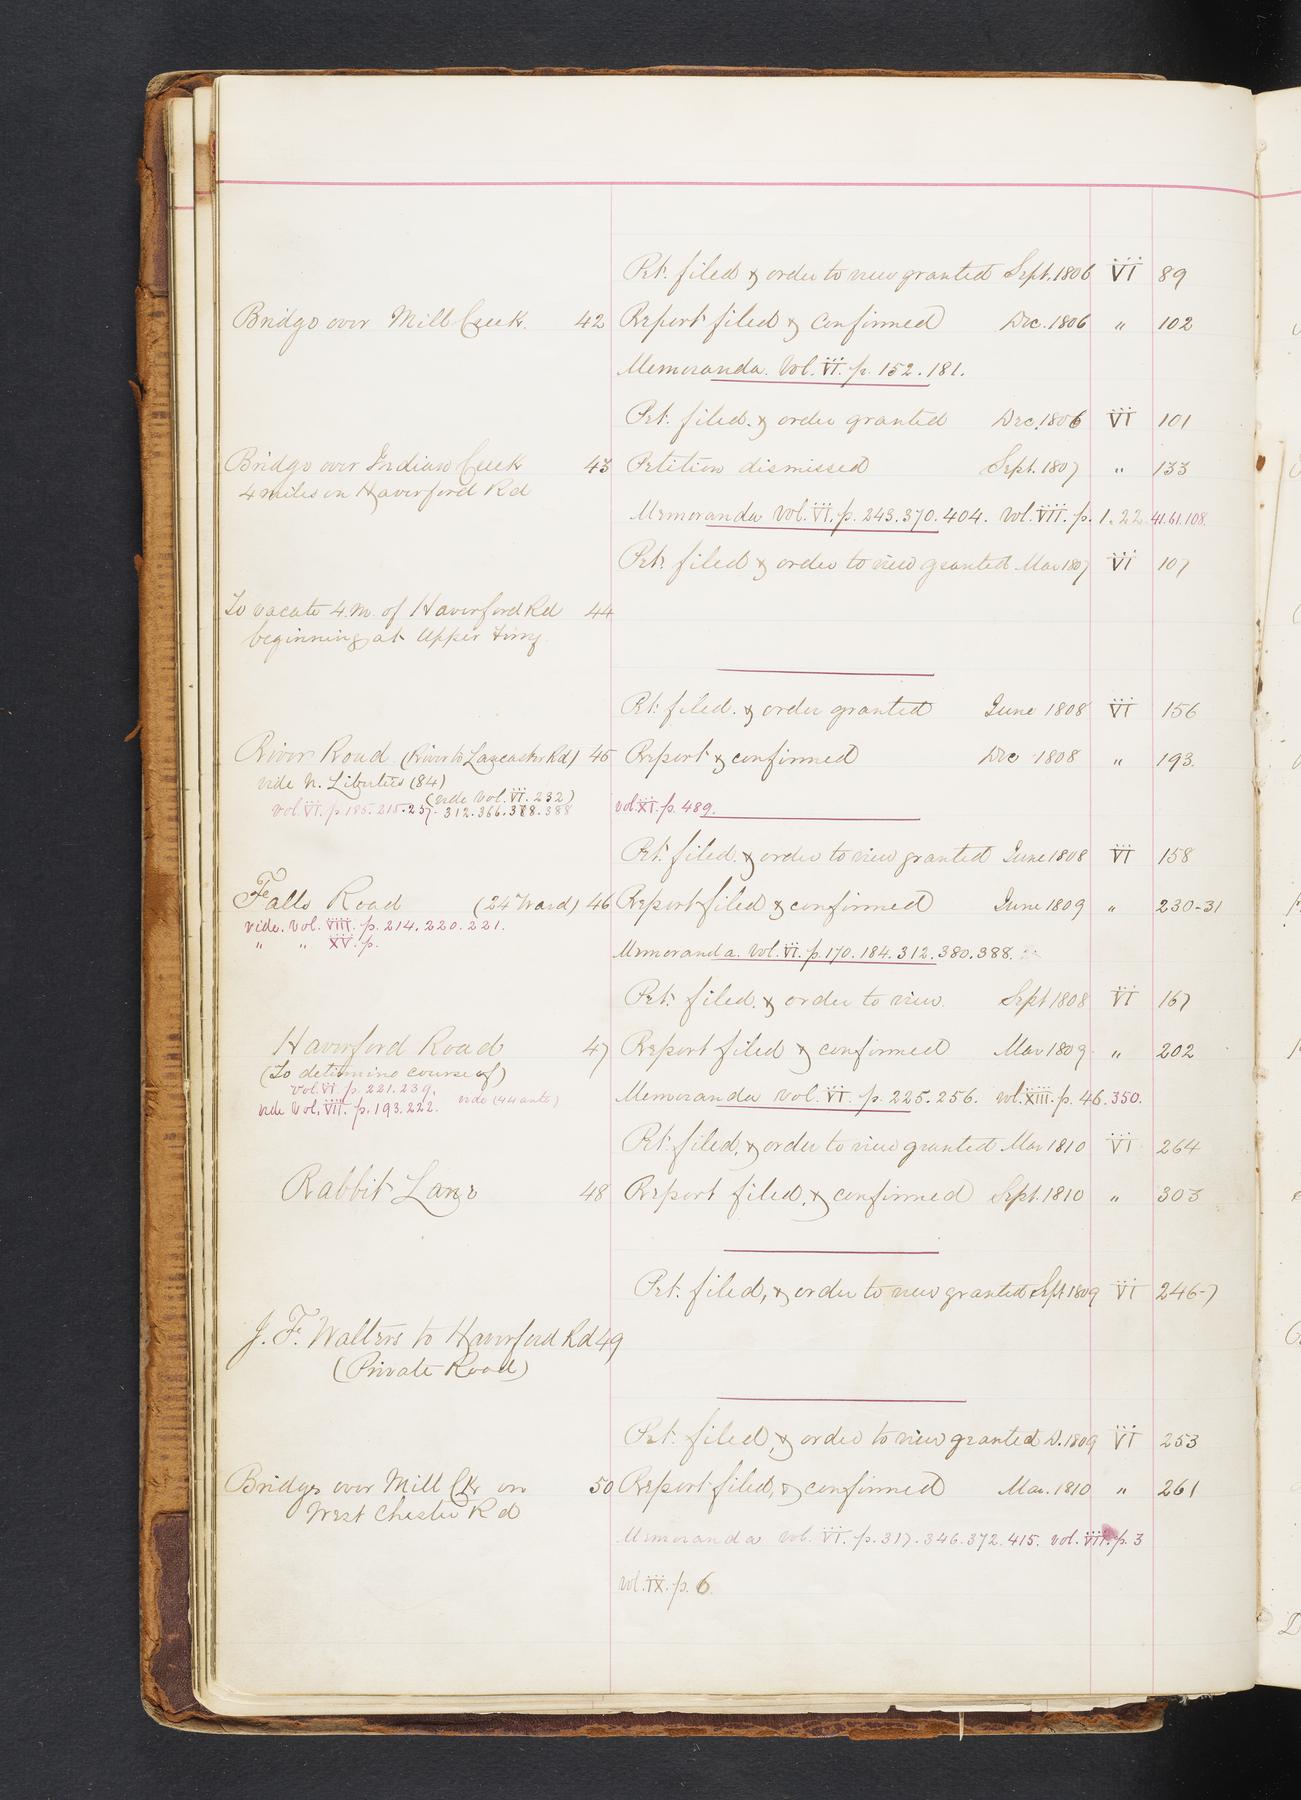 Pet. filed & order to view granted Sept. 1806 VI 89
Bridge over Mill Creek. 42 Report filed & confirmed Dec. 1806 " 102
Memoranda. Vol. VI. p. 152. 181.
Pet. filed. & order granted Dec. 1806 VI 101
Bridge over Indian Creek 43 Petition dismissed Sept. 1807 " 133
4 miles on Haverford Rd
Memoranda Vol. VI. p. 243. 370. 404. Vol. VII. p. 1. 22. 41. 61. 108.
Pet. filed & order to view granted Mar 1807 VI 107
To vacate 4. m. of Haverford Rd 44
beginning at Upper Ferry.
Pet. filed. & order granted June 1808 VI 156
River Road (River to Lancaster Rd) 45 Report & confirmed Dec 1808 " 193.
vide N. Liberties (84)
(vide Vol. VI. 232)
Vol. VI. p. 185. 215. 237. 312. 366. 378. 388 vol. XI. p. 489.
Pet. filed. & order to view granted June 1808 VI 158
Falls Road (24" Ward) 46 Report filed & confirmed June 1809 " 230-31
vide. Vol. VIII. p. 214. 220. 221.
" " XV. p.
Memoranda. Vol. VI. p. 170. 184. 312. 380. 388.
Pet. filed. & order to view. Sept 1808 VI 167
Haverford Road 47 Report filed & confirmed Mar 1809. " 202
(To determine course of)
Vol. VI. p. 221. 239.
vide Vol. VII. p. 193. 222. vide (44 ante)
Memoranda Vol. VI. p. 225. 256. Vol. XIII. p. 46. 350.
Pet. filed, & order to view granted Mar 1810 VI 264
Rabbit Lane 48 Report filed, & confirmed Sept. 1810 " 303
Pet. filed, & order to view granted Sept 1809 VI 246-7
J. F. Walters to Haverford Rd 49
(Private Road)
Pet. filed, & order to view granted D. 1809 VI 253
Bridge over Mill Ck on 50 Report filed, & confirmed Mar. 1810 " 261
West Chester Rd
Memoranda Vol. VI. p. 317. 346. 372. 415. vol. VIII. p. 3
vol. IX. p. 6.